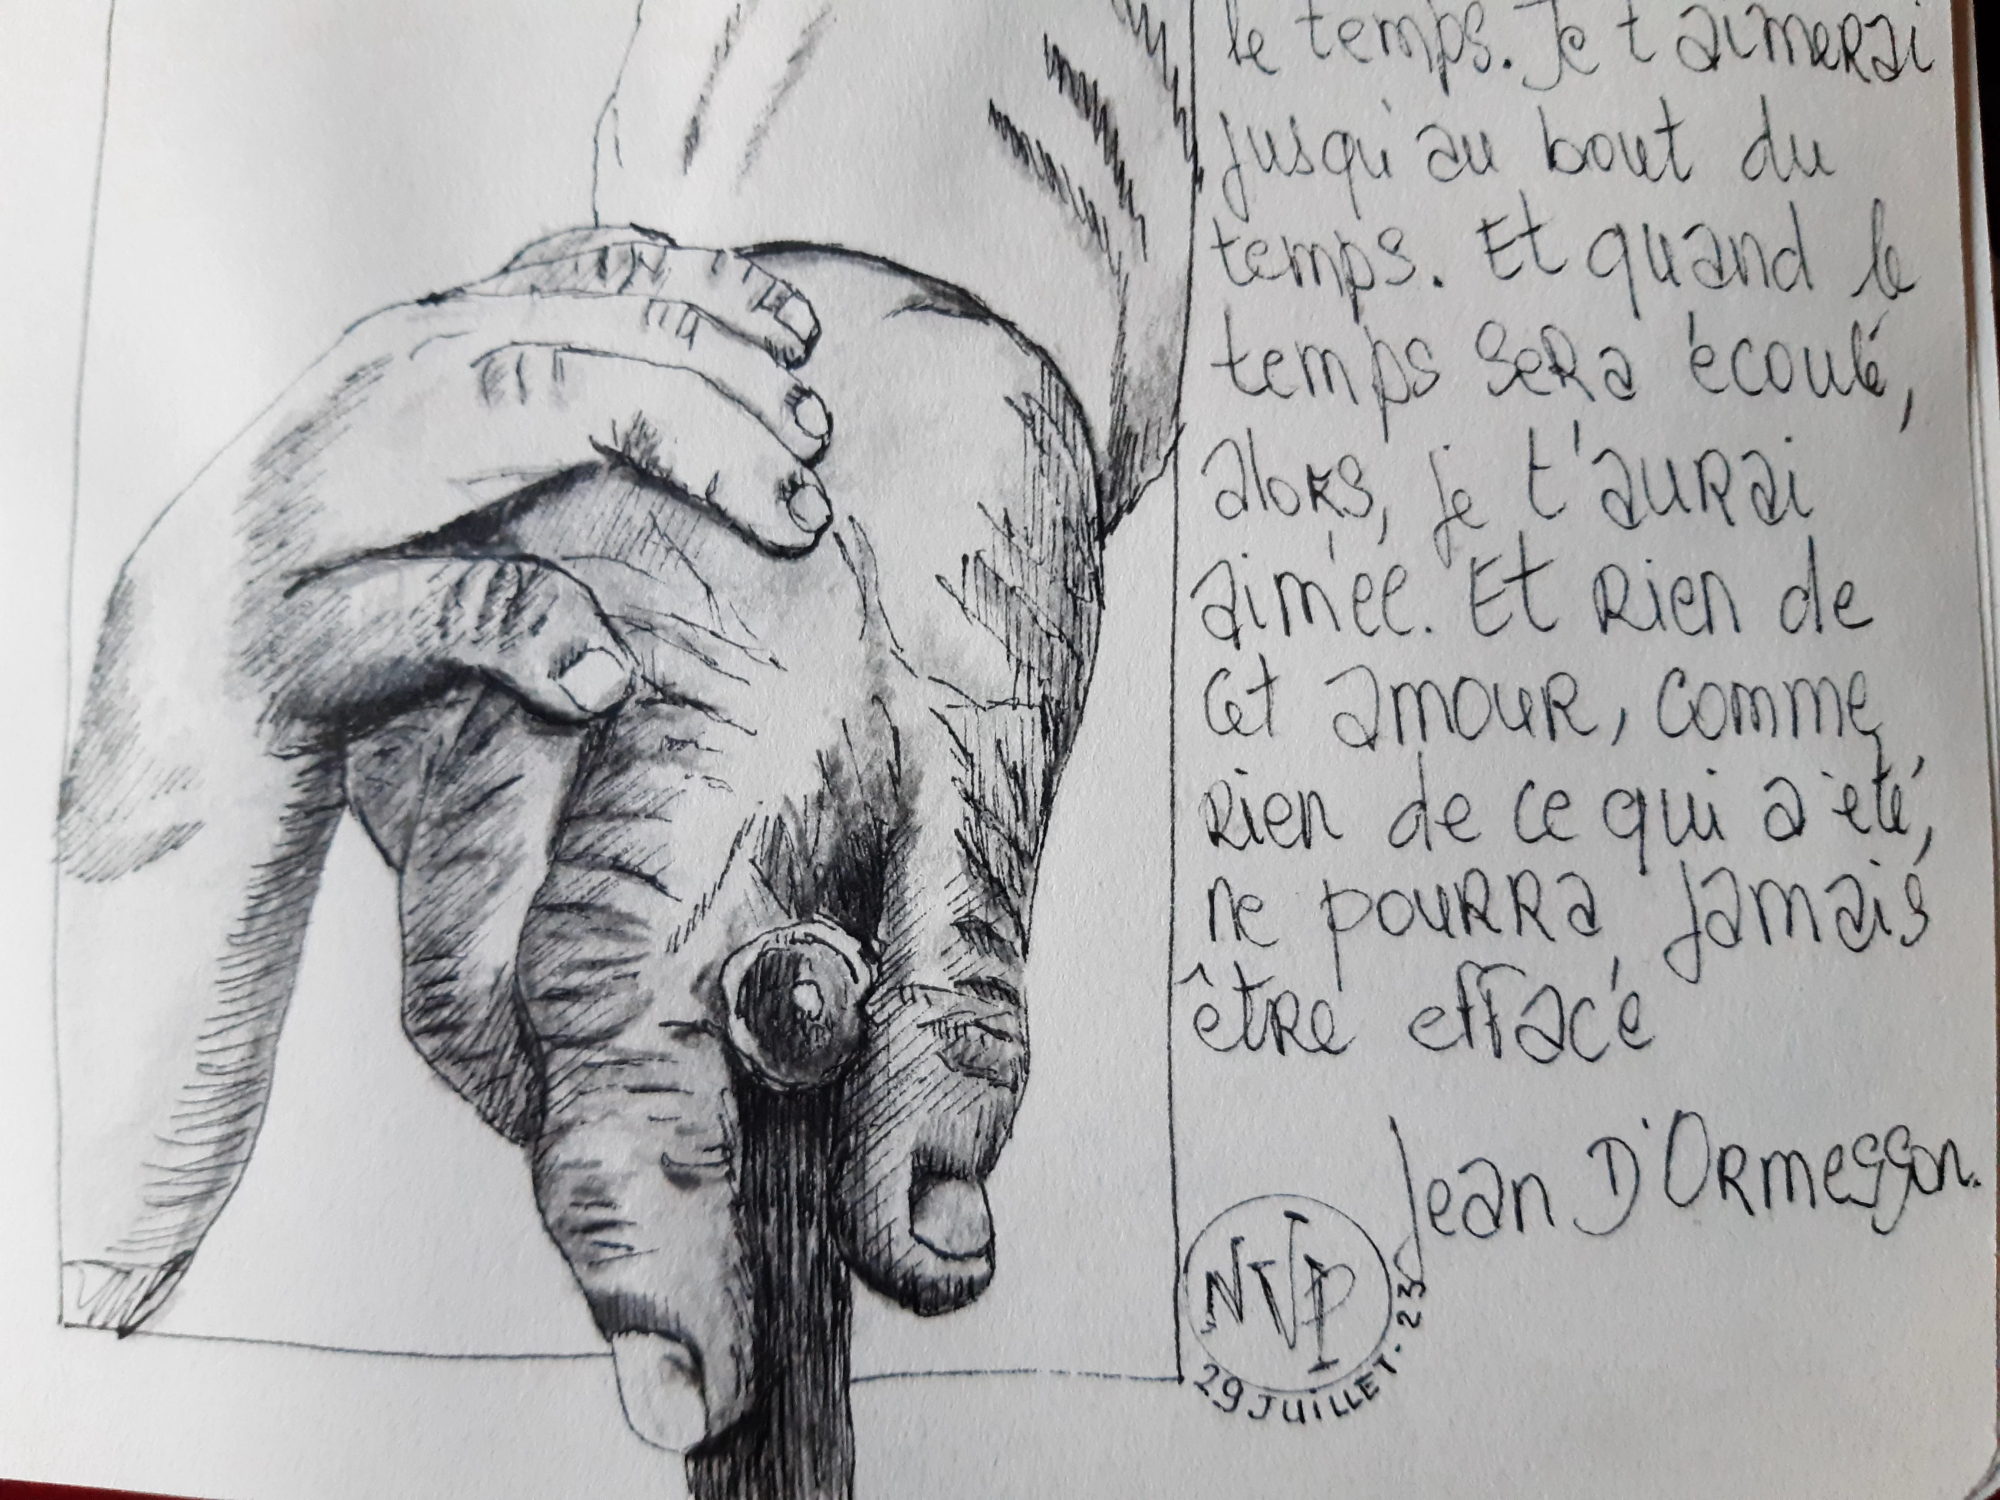 le temps. Je t'aimerai
jusqu'au bout du
temps. Et quand le
temps sera écoulé,
alors, je t'aurai
aimée. Et rien de
cet amour, comme
rien de ce qui a été,
ne pourra jamais
être effacé
Jean D'Ormesson.
NVP
29 JUILLET. 23